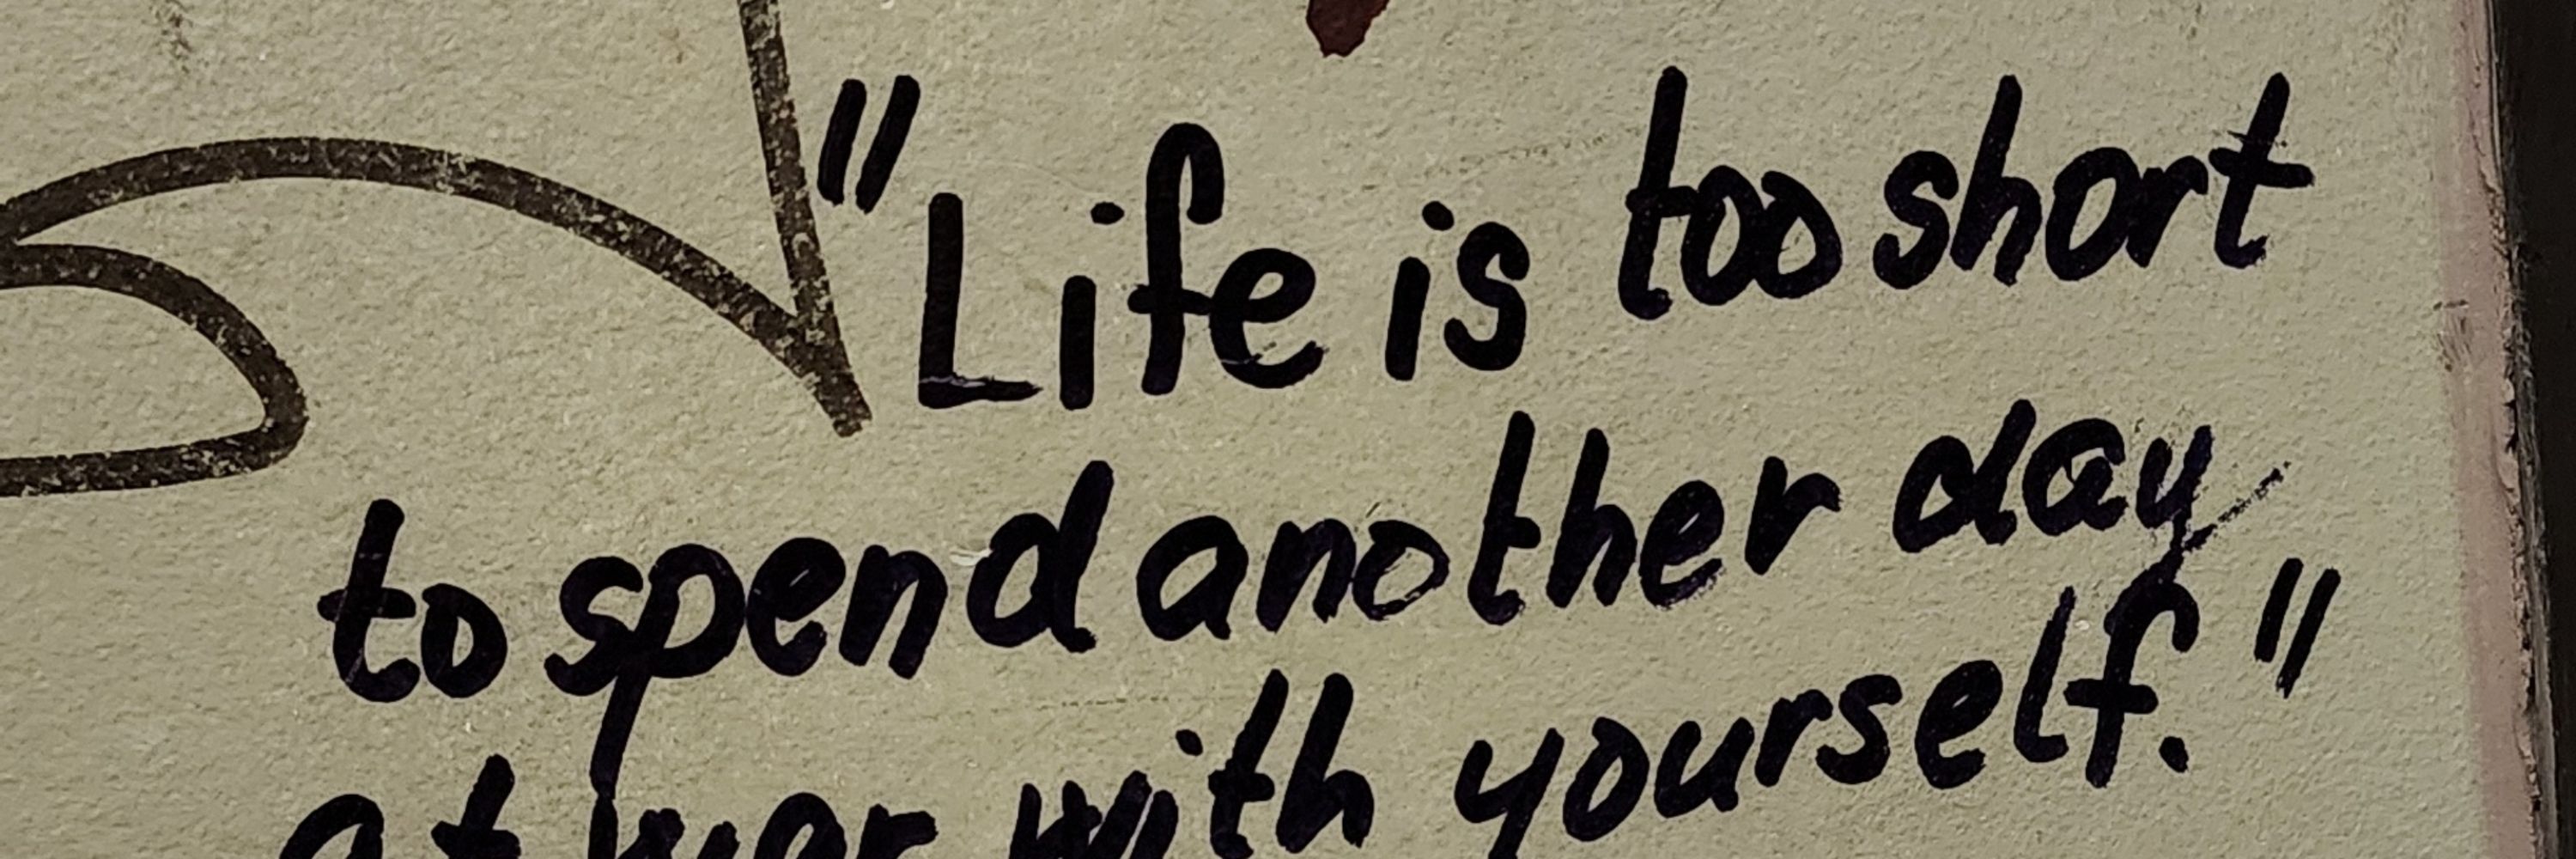 "Life is too short
to spend another day
at war with yourself."